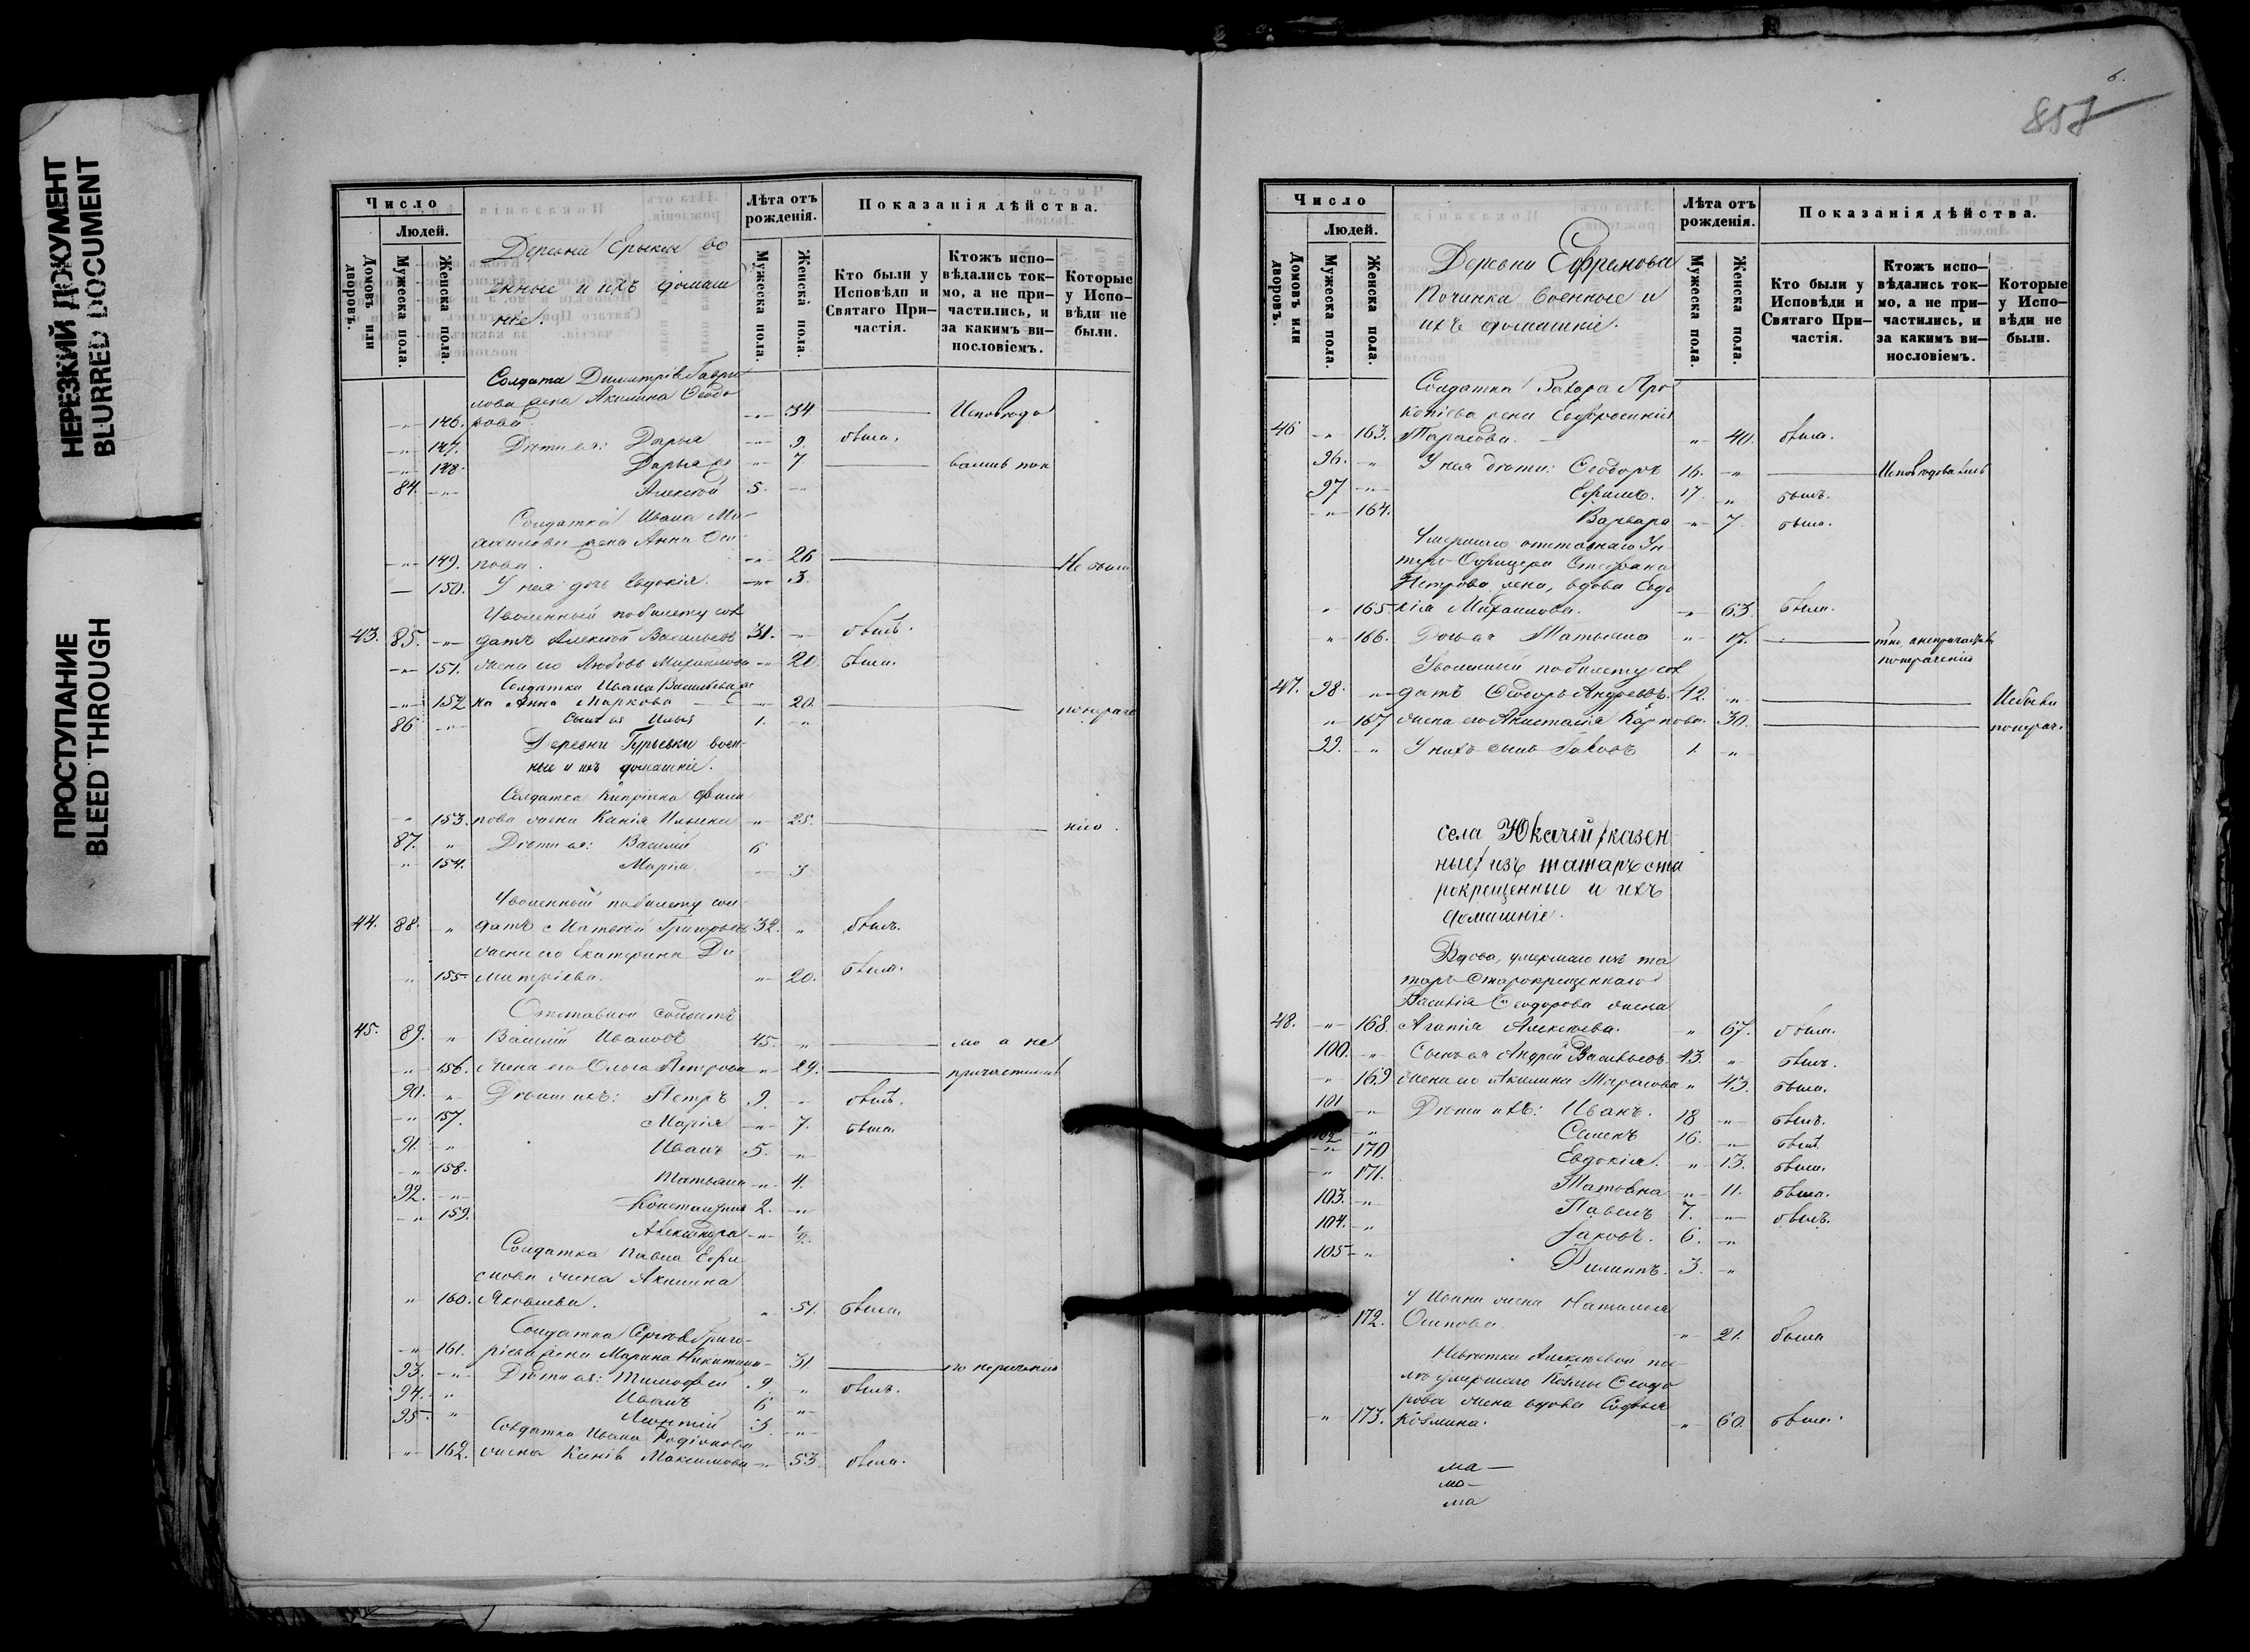 НЕРЕЗКИЙ ДОКУМЕНТ
BLURRED DOCUMENT
ПРОСТУПАНИЕ
BLEED THROUGH
Число
Людей.
Домовъ или дворовъ.
Мужеска пола.
Женска пола.
Деревни Ерыксы во
енные и ихъ домаш
ніе.
Лѣта отъ рожденія.
Мужеска пола.
Женска пола.
Показанія дѣйства.
Кто были у Исповѣди и Святаго При-частія.
Ктожъ испо-вѣдались ток-мо, а не при-частились, и за какимъ ви-нословіемъ.
Которые у Испо-вѣди не были.
Солдата Димитрія Гаври
лова жена Акилина Ѳедо
146. рова 34 Исповѣдо
147. Дѣти ея: Дарья 9. была.
148. Дарья 7 вались
84. Алексѣй 5.
Солдатка Ивана Ми-
хаилова жена Анна Оси-
149. пова. 26 Не были
150. У нея дочь Евдокія. 3.
Уволенный по билету сол
43. 85. датъ Алексѣй Васильевъ 31. былъ.
151. жена его Любовь Михайлова 20. была.
Солдатка Ивана Васильева же
152 на Анна Маркова 20.
86 Сынъ ея Илья 1.
Деревни Гурьевки воен-
ные и ихъ домашніе.
Солдатка Кипріяна Фили
153. пова жена Ксенія Ильина 25. нію.
87. Дѣти ея: Василій 6
154. Марія 3
Уволенный по билету сол
44. 88. датъ Матвѣй Григорьевъ 32. былъ.
жена его Екатерина Ди
155 митріева. 20. была.
Отставной солдатъ
45. 89. Василій Ивановъ 45. мо а не
156. жена его Ольга Петрова 29. причастились
90. Дѣти ихъ: Петръ 9. былъ.
157. Марія 7. была.
91. Иванъ 5.
158. Татьяна 4.
92. Константинъ 2.
159. Александра
Солдатка Павла Ефи
мова жена Акилина
160. Яковлева. 51. была.
Солдатка Сергѣя Григо-
161. ріева жена Марина Никитина 31. по нерадѣнію
93. Дѣти ея: Тимофей 9. былъ.
94. Иванъ 6
95. Леонтій 3.
Солдатка Ивана Родіонова
162. жена Ксенія Максимова 53. была.
6.
857
Число
Людей.
Домовъ или дворовъ.
Мужеска пола.
Женска пола.
Деревни Ефремова
Починка военные и
ихъ домашніе.
Лѣта отъ рожденія.
Мужеска пола.
Женска пола.
Показанія дѣйства.
Кто были у Исповѣди и Святаго При-частія.
Ктожъ испо-вѣдались ток-мо, а не при-частились, и за какимъ ви-нословіемъ.
Которые у Испо-вѣди не были.
Солдатка Захара Про
копіева жена Евфросинія
46 163. Тарасова. 40. была.
96. У нея дѣти: Ѳеодоръ 16. Исповѣдовались
97 Ефимъ. 17 былъ.
164. Варвара 7. была.
Умершаго отставнаго Ун-
теръ-Офицера Стефана
Петрова жена, вдова Евдо
165. кія Михайлова. 63. была.
166. Дочь ея Татьяна 17.
Уволенный по билету сол
47. 98. датъ Ѳеодоръ Андреевъ. 42. Небыли
167 жена его Анастасія Карпова. 30. понерад.
99. У нихъ сынъ Яковъ 1.
села Юкачей /казен
ные/ изъ татаръ ста
рокрещенные и ихъ
домашніе.
Вдова, умершаго изъ та
таръ старокрещеннаго
Василія Ѳеодорова жена
48. 168. Агапія Алексѣева. 67. была.
100. Сынъ ея Андрей Васильевъ. 43. былъ.
169 жена его Акилина Тарасова 43. была.
101 Дѣти ихъ: Иванъ. 18 былъ.
102 Семенъ 16. былъ.
170 Евдокія. 13. была.
171. Татьяна 11. была.
103. Павелъ 7. былъ.
104. Яковъ. 6.
105 Филиппъ. 3.
У Ивана жена Наталья
172. Осипова. 21. была
Невѣстка Алексѣевой по-
слѣ умершаго Козмы Ѳеодо
рова жена вдова Софья
173. Козмина. 60. была.